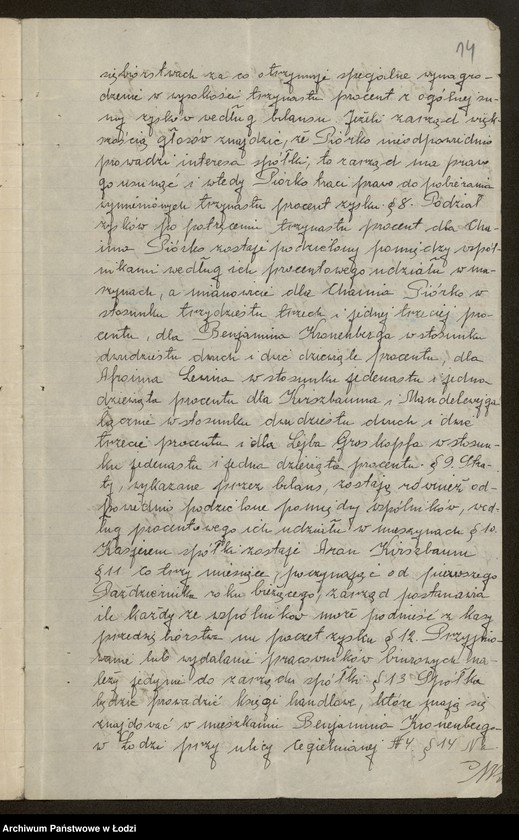 14
siębiorstwach za co otrzymuje specjalne wynagro-
dzenie w wysokości trzynastu procent z ogólnej su-
my zysków według bilansu. Jeżeli zarząd więk-
szością głosów znajdzie, że Piórko nieodpowiednio
prowadzi interesa spółki, to zarząd ma prawo
go usunąć i wtedy Piórko traci prawo do pobierania
wymienionych trzynastu procent zysku § 8. Podział
zysków po potrąceniu trzynastu procent dla Cha-
ima Piórko zostaje podzielony pomiędzy wspól-
nikami według ich procentowego udziału w ma-
szynach, a mianowicie dla Chaima Piórko w
stosunku trzydziestu trzech i jednej trzeciej pro-
centu, dla Benjamina Kronenberga w stosunku
dwudziestu dwóch i dwie dziewiąte procentu, dla
Afroima Lewina w stosunku jedenastu i jedna
dziewiąta procentu dla Kirszbauma i Mandelowicza
łącznie w stosunku dwudziestu dwóch i dwie
trzecie procentu i dla Lejba Groskopfa w stosun-
ku jedenastu i jedna dziewiąta procentu. § 9. Stra-
ty, wykazane przez bilans, zostają również od-
powiednio podzielone pomiędzy wspólników, wed-
ług procentowego ich udziału w maszynach § 10.
Kasjerem spółki zostaje Aron Kirszbaum
§ 11 co trzy miesiące, poczynając od pierwszego
Października roku bieżącego, zarząd postanawia
ile każdy ze wspólników może podnieść z kasy
przedsiębiorstwa na poczet zysku § 12. Przyjmo-
wanie lub wydalanie pracowników biurowych na-
leży jedynie do zarządu spółki § 13 Spółka
będzie prowadzić księgi handlowe, które mają się
znajdować w mieszkaniu Benjamina Kronenberga
w Łodzi przy ulicy Cegielnianej #4 § 14
Archiwum Państwowe w Łodzi